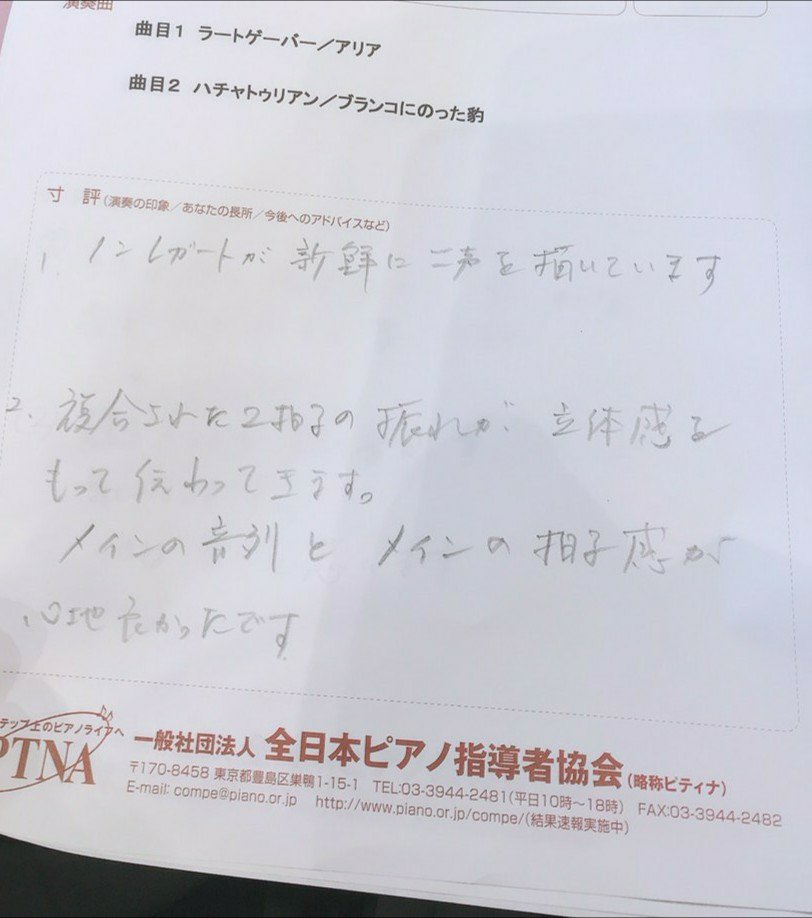 演奏曲
曲目1 ラートゲーバー／アリア
曲目2 ハチャトゥリアン／ブランコにのった豹
寸 評(演奏の印象／あなたの長所／今後へのアドバイスなど)
1. ノンレガートが 新鮮に 二声を 描いています
2. 複合された2拍子の 振れが 立体感を
もって 伝わってきます。
メインの音列と メインの拍子感が
心地よかったです
テップ上のピアノライフへ
PTNA
一般社団法人 全日本ピアノ指導者協会(略称ピティナ)
〒170-8458 東京都豊島区巣鴨1-15-1 TEL:03-3944-2481(平日10時〜18時) FAX:03-3944-2482
E-mail: compe@piano.or.jp http://www.piano.or.jp/compe/(結果速報実施中)